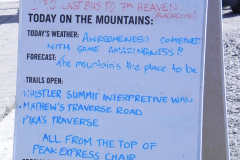 LAST BUS TO 7TH HEAVEN
TODAY ON THE MOUNTAINS:
TODAY'S WEATHER: AWESOMENESS COMBINED
WITH SOME AMAZINGNESS!!
FORECAST: The mountains the place to be
TRAILS OPEN:
WHISTLER SUMMIT INTERPRETIVE WALK
MATHEW'S TRAVERSE ROAD
PIKA'S TRAVERSE
ALL FROM THE TOP OF
PEAK EXPRESS CHAIR